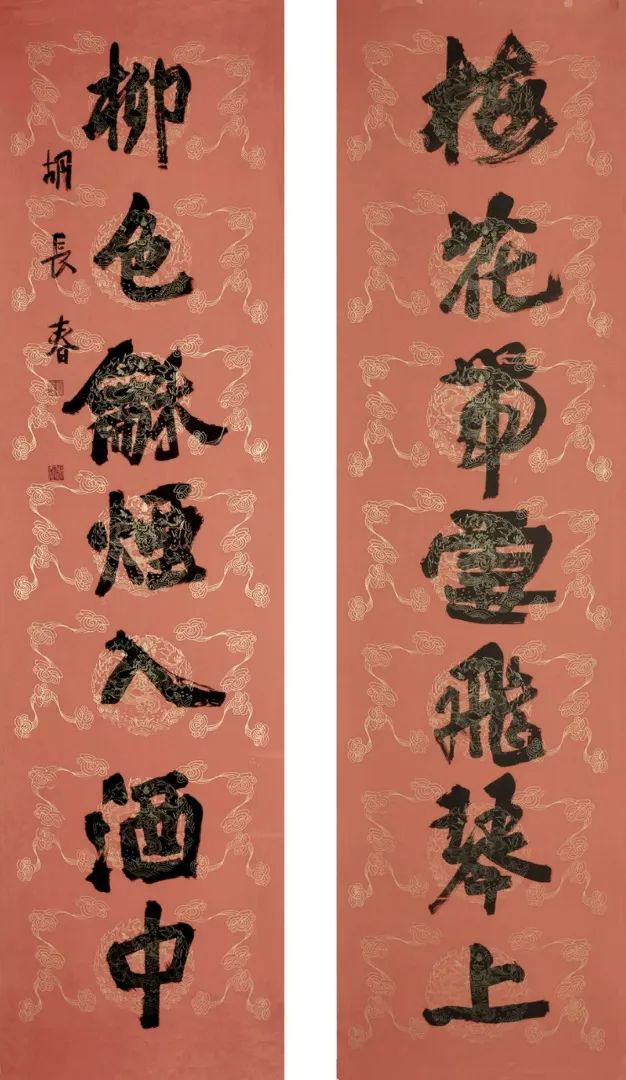 梅花帶雪飛琴上
柳色龢煙入酒中
胡長春